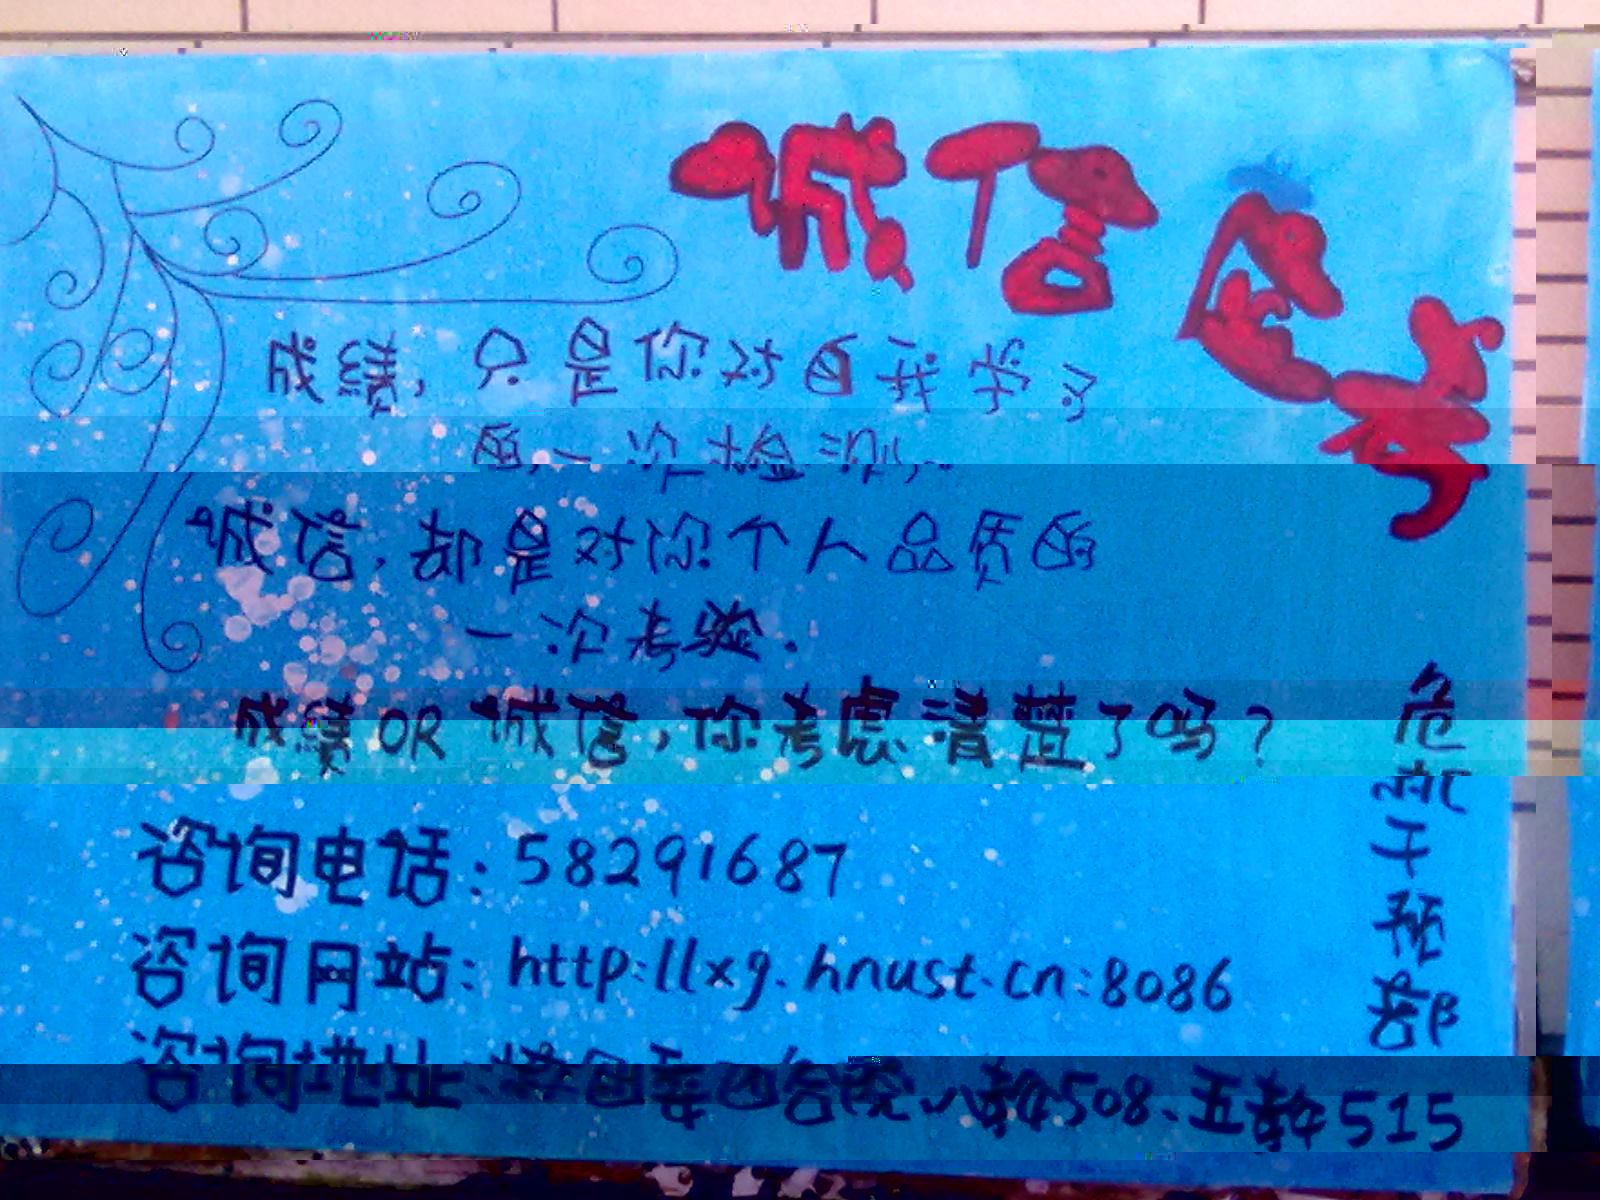 诚信应考
成绩，只是你对自我学习
的一次检测，
诚信，却是对你个人品质的
一次考验．
成绩OR诚信，你考虑清楚了吗？
咨询电话：58291687
咨询网站：http:llxg.hnust.cn:8086
咨询地址：四合院、八教508、五教515
危机干预部